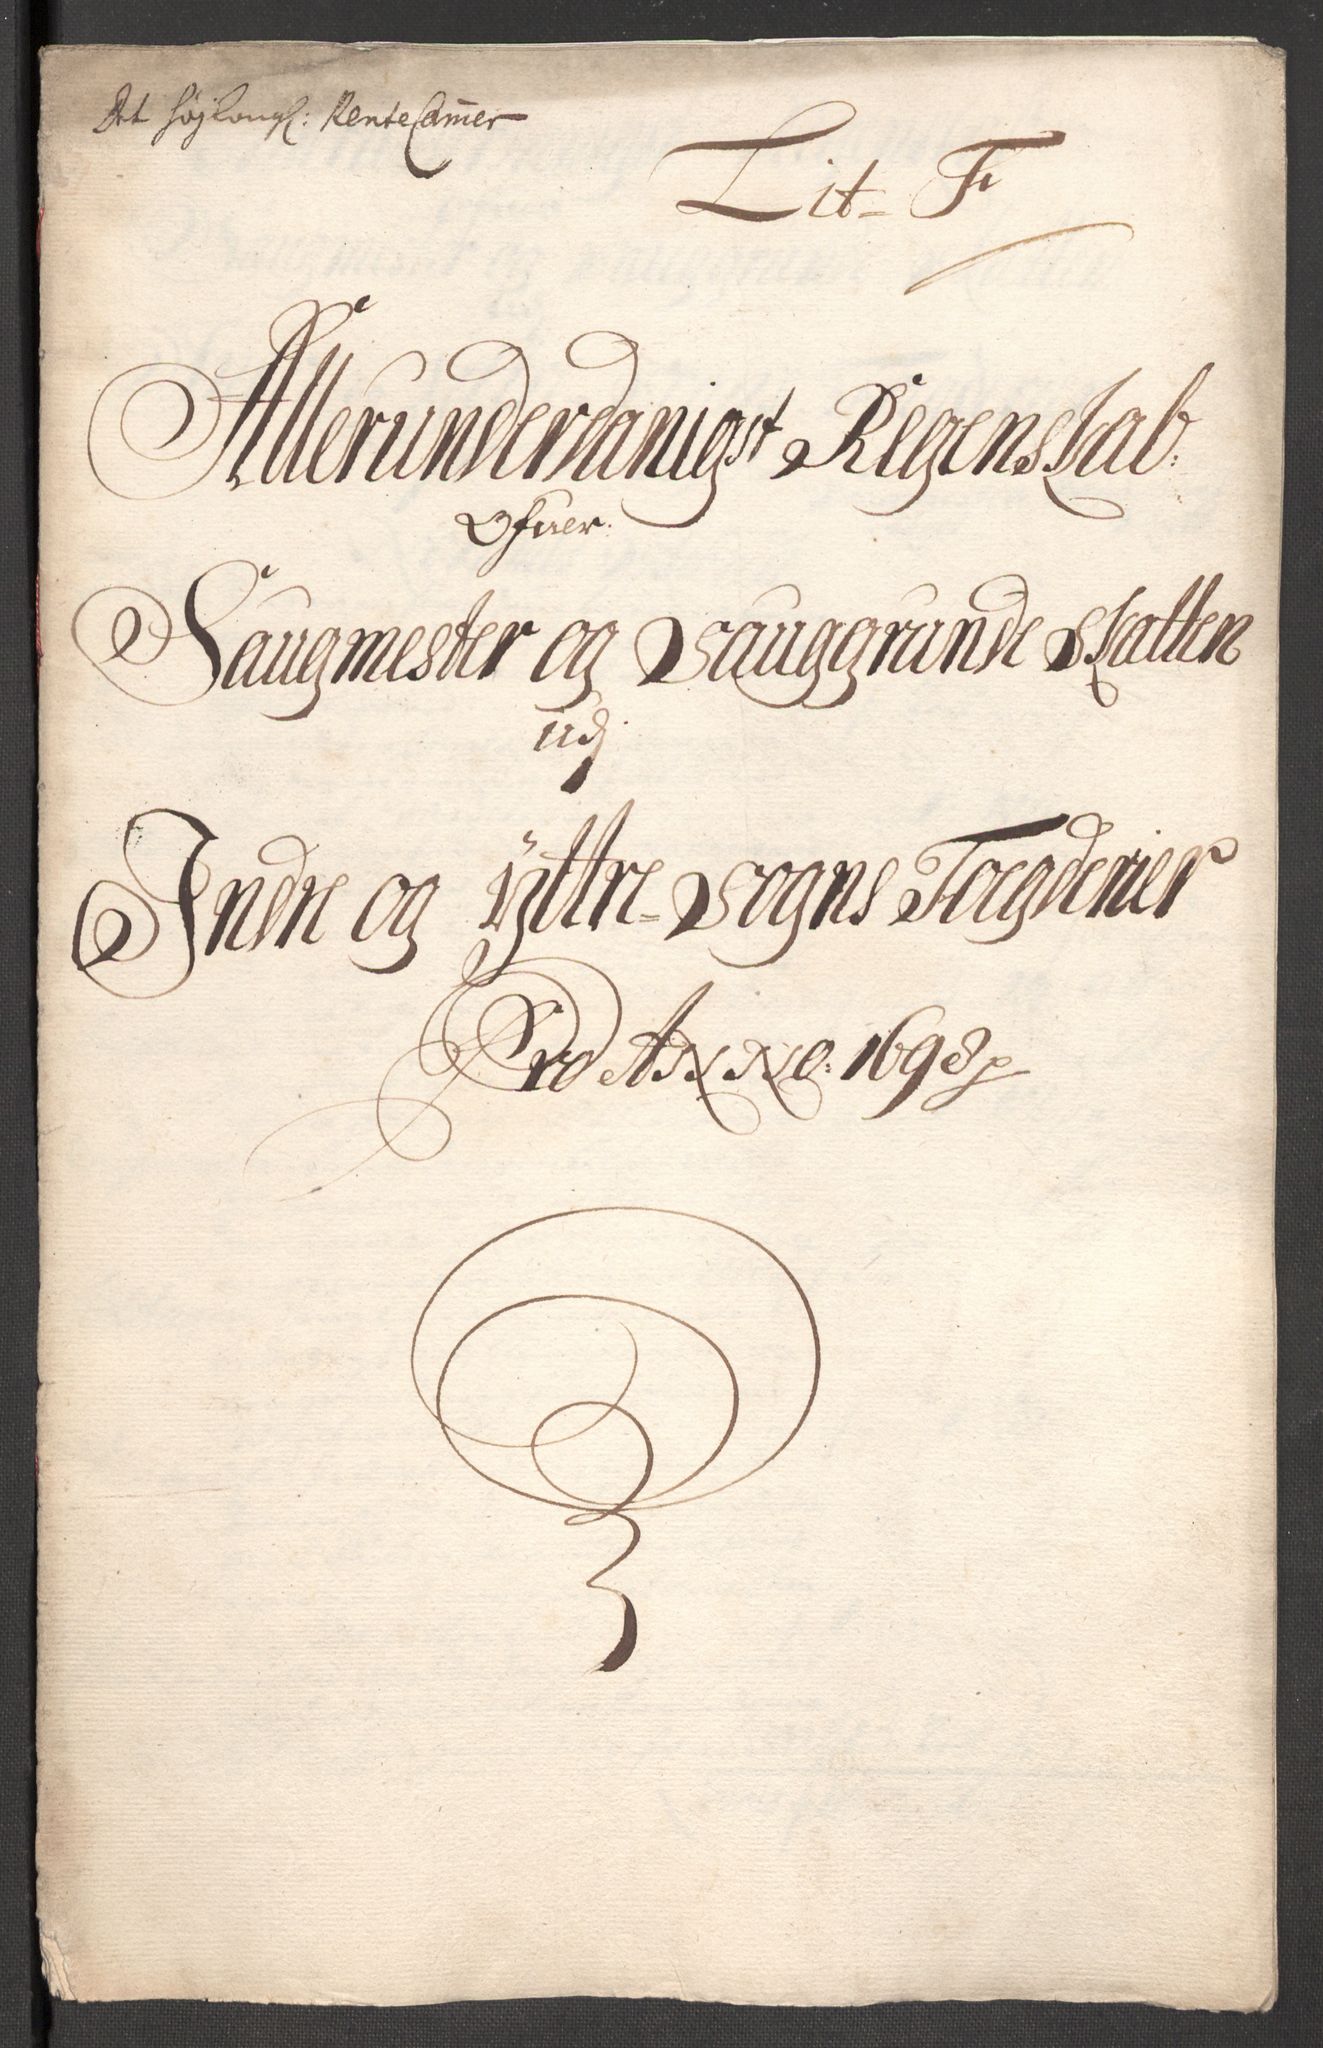 Det høyLougl: RenteCammer
Lit= F
Allerunderdanigst Regenskab:
Ofuer:
Saugmester og Sauggrunde Skatten
udj
Indre og Ÿttre=Sogns Foegderier
Pro ANNO: 1698